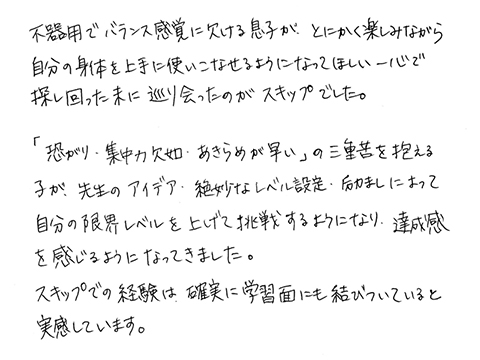 不器用でバランス感覚に欠ける息子が、とにかく楽しみながら
自分の身体を上手に使いこなせるようになってほしい一心で
探し回った末に巡り会ったのがスキップでした。
「恐がり・集中力欠如・あきらめが早い」の三重苦を抱える
子が、先生のアイデア・絶妙なレベル設定・励ましによって
自分の限界レベルを上げて挑戦するようになり、達成感
を感じるようになってきました。
スキップでの経験は、確実に学習面にも結びついていると
実感しています。